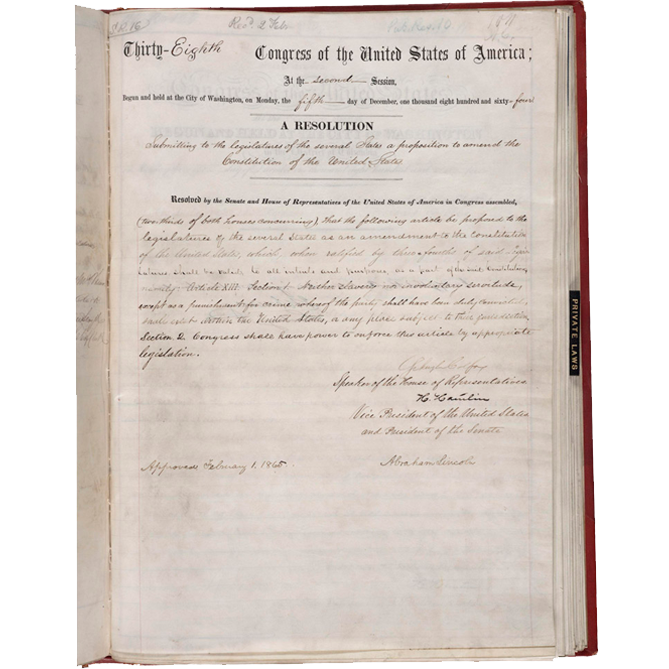 S.R. 16
Recd. 2 Feb.
Thirty-Eighth Congress of the United States of America;
At the second Session,
Begun and held at the City of Washington, on Monday, the fifth day of December, one thousand eight hundred and sixty-four
A RESOLUTION
Submitting to the legislatures of the several States a proposition to amend the
Constitution of the United States
Resolved by the Senate and House of Representatives of the United States of America in Congress assembled,
(two-thirds of both houses concurring), that the following article be proposed to the
legislatures of the several States as an amendment to the Constitution
of the United States, which, when ratified by three-fourths of said legis-
latures shall be valid, to all intents and purposes, as a part of the said Constitution,
namely: Article XIII. Section 1. Neither slavery nor involuntary servitude,
except as a punishment for crime whereof the party shall have been duly convicted,
shall exist within the United States, or any place subject to their jurisdiction.
Section 2. Congress shall have power to enforce this article by appropriate
legislation.
Schuyler Colfax
Speaker of the House of Representatives.
H. Hamlin
Vice President of the United States
and President of the Senate
Approved February 1. 1865.
Abraham Lincoln
PRIVATE LAWS